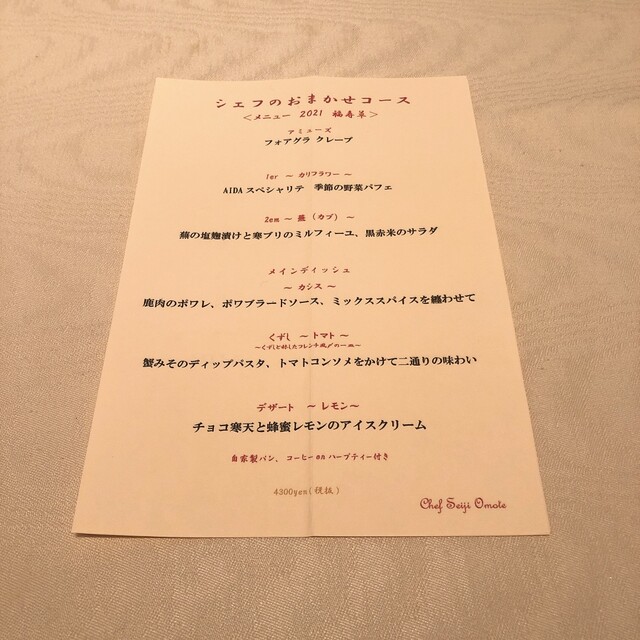 シェフのおまかせコース
＜メニュー 2021 福寿草＞
アミューズ
フォアグラ クレープ
1er ～ カリフラワー ～
AIDA スペシャリテ 季節の野菜パフェ
2em ～ 蕪（カブ） ～
蕪の塩麹漬けと寒ブリのミルフィーユ、黒赤米のサラダ
メインディッシュ
～ カシス ～
鹿肉のポワレ、ポワブラードソース、ミックススパイスを纏わせて
くずし ～ トマト ～
～くずしと称したフレンチ風〆の一皿～
蟹みそのディップパスタ、トマトコンソメをかけて二通りの味わい
デザート ～ レモン～
チョコ寒天と蜂蜜レモンのアイスクリーム
自家製パン、コーヒーorハーブティー付き
4300yen(税抜)
Chef Seiji Omote